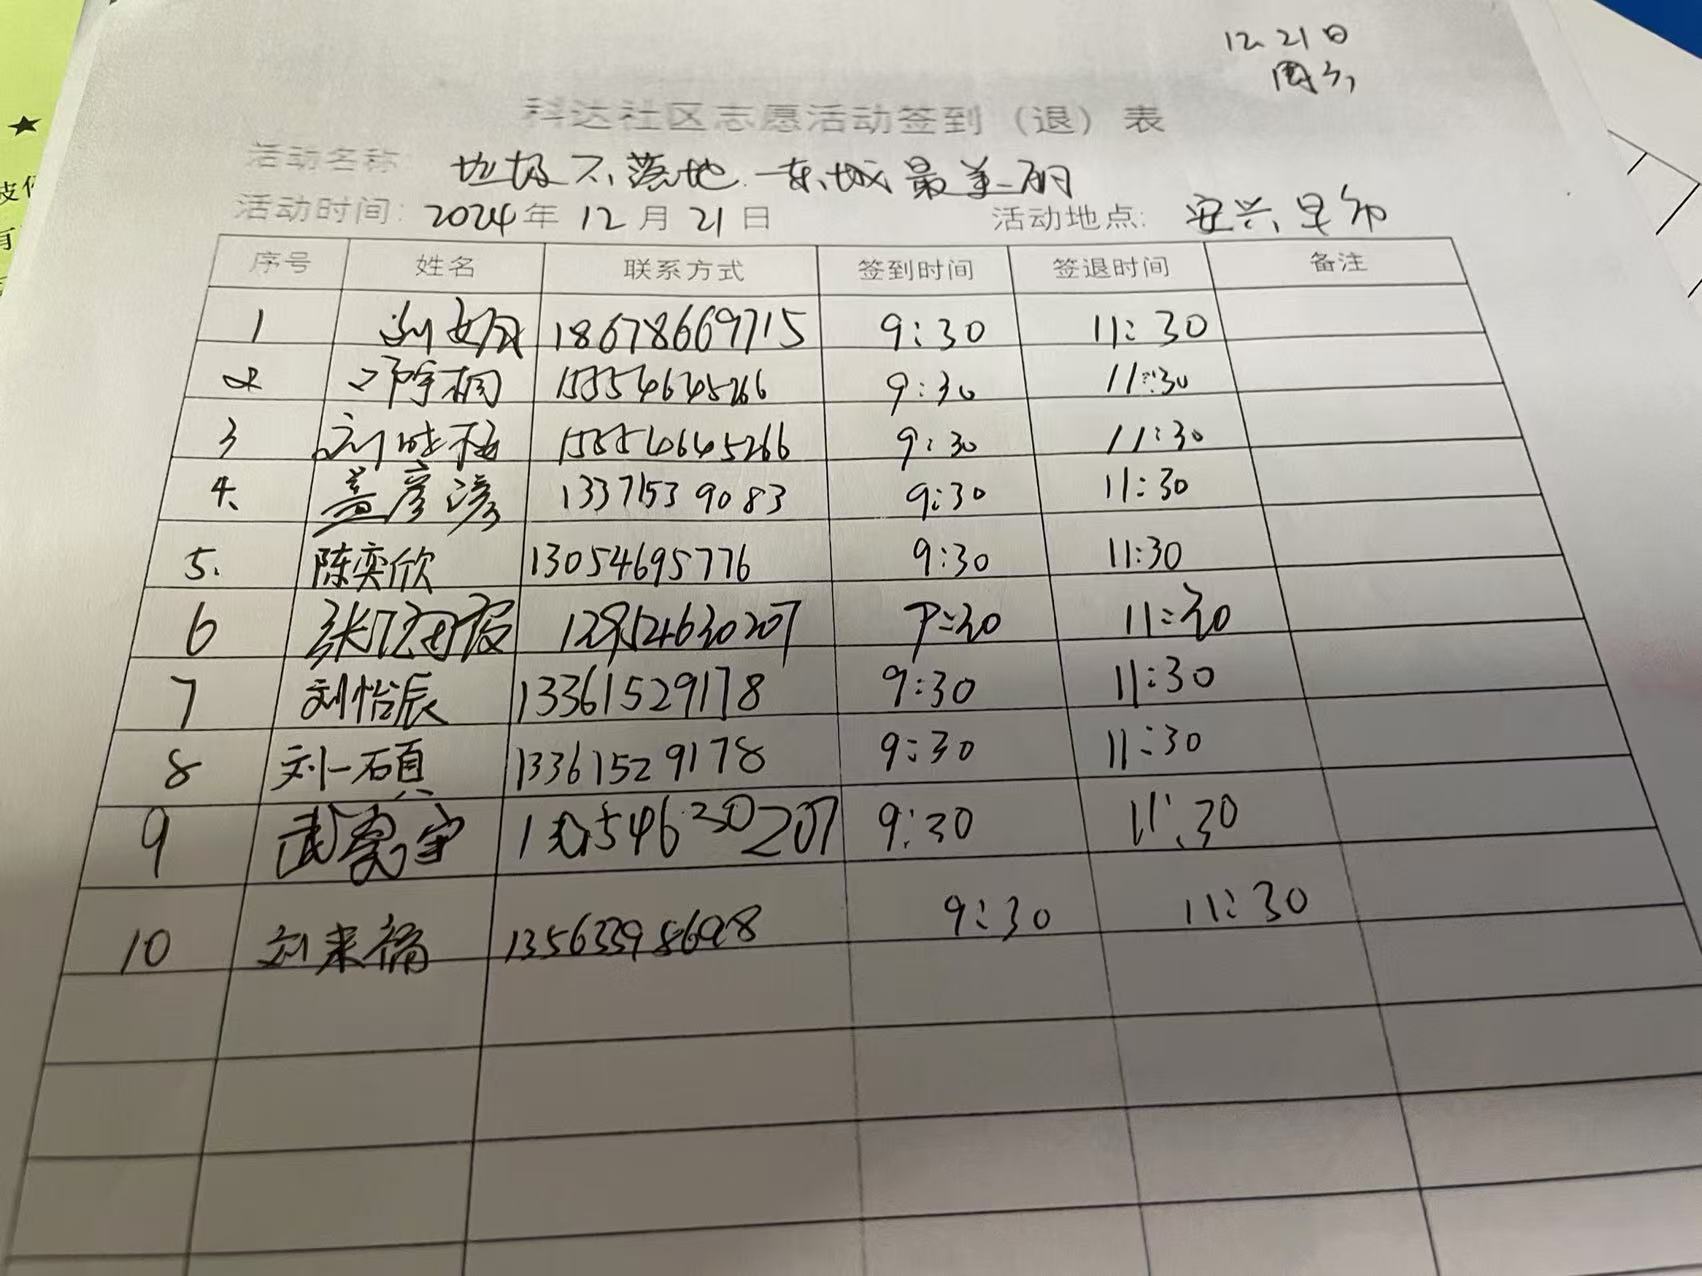 12.21日
周六
科达社区志愿活动签到（退）表
活动名称: 垃圾不落地 东城最美丽
活动时间: 2024年12月21日 活动地点: 安兴早市
序号 姓名 联系方式 签到时间 签退时间 备注
1 刘 18678669715 9:30 11:30
2 邓梓桐 15554645266 9:30 11:30
3 刘晓梅 15554645266 9:30 11:30
4. 盖彦涔 13371539083 9:30 11:30
5. 陈奕欣 13054695776 9:30 11:30
6 9:30 11:30
7 刘怡辰 13361529178 9:30 11:30
8 刘一碩 13361529178 9:30 11:30
9 武 宇 9:30 11:30
10 刘来福 9:30 11:30